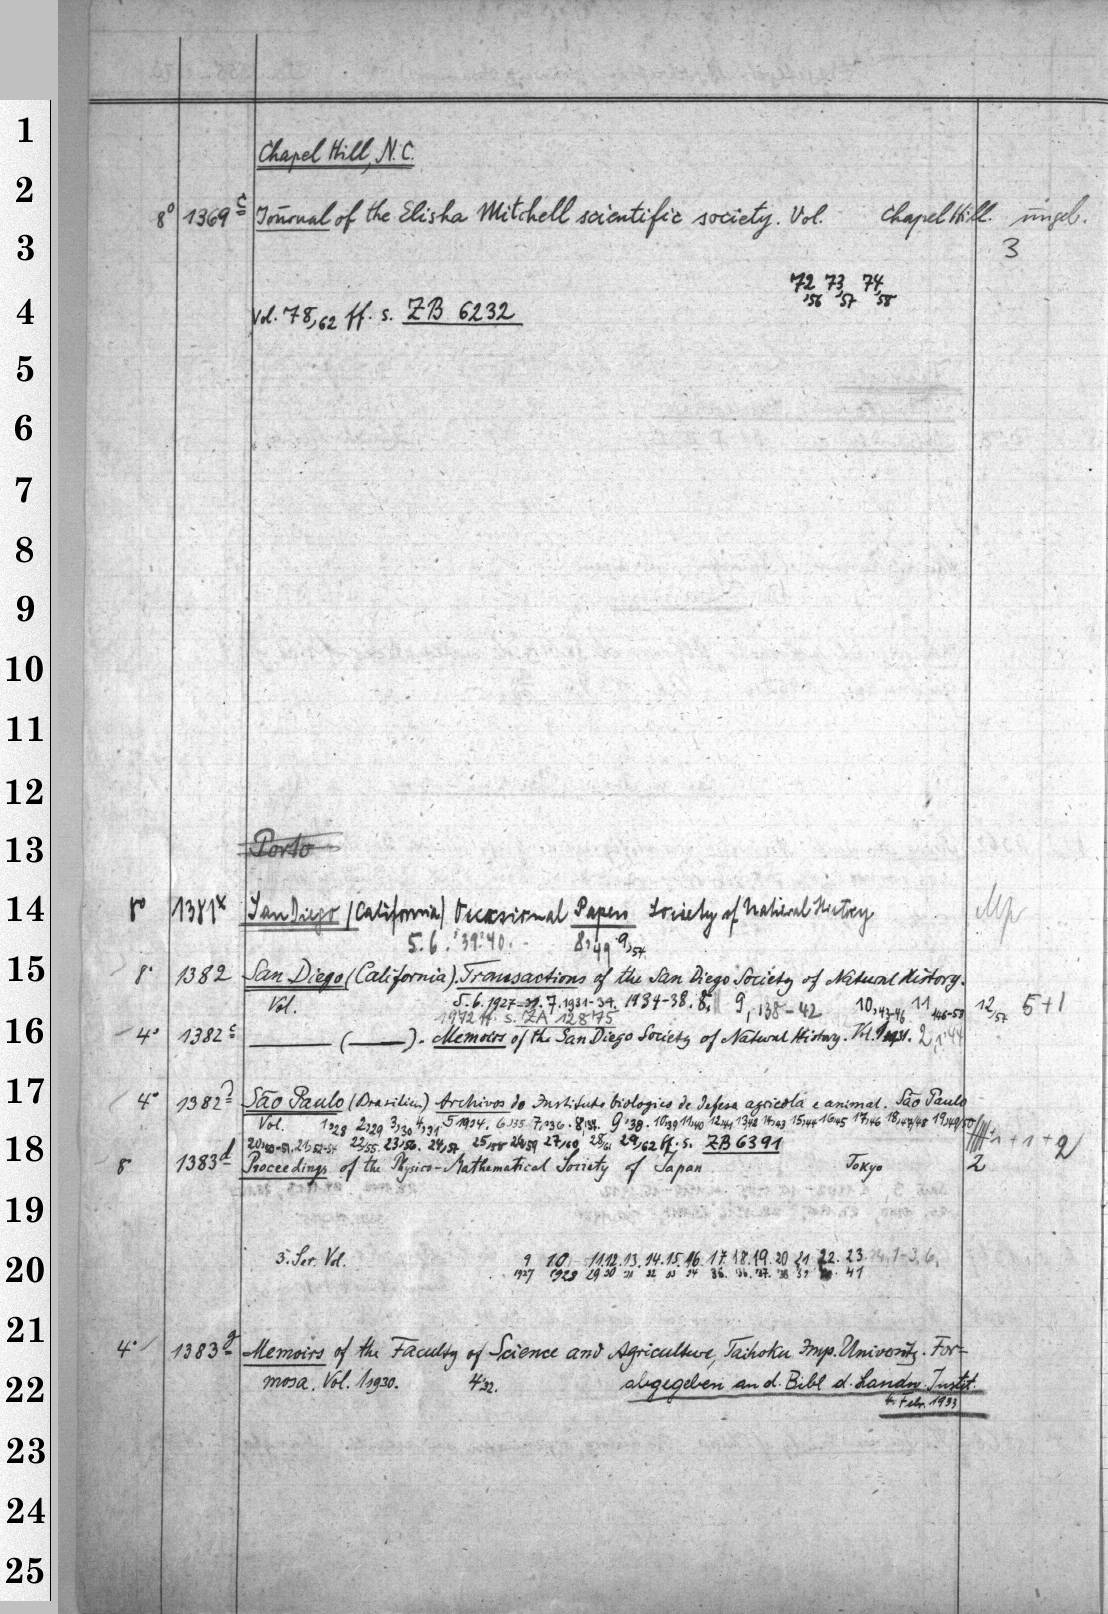 1
Chapel Hill, N.C.
2
8° 1369 c Journal of the Elisha Mitchell scientific society. Vol. Chapel Hill. ungel.
3
3
72,56 73,57 74,58
4
Vol. 78,62 ff. s. ZB 6232
5
6
7
8
9
10
11
12
13
Porto
14
8° 1381x San Diego (California) Occasional Papers Society of Natural History
5. 6. '39 '40. 8,49 9,54
15
8° 1382 San Diego (California). Transactions of the San Diego Society of Natural History.
Vol. 5. 6. 1927-31. 7. 1931-34. 1934-38. 8, 9, 138-42 10,43-46 11 12/57 5+1
1972 ff. s. ZA 12875
16
4° 1382 c ——— (———). Memoirs of the San Diego Society of Natural History. Vol. 1 1931. 2, '44
17
4° 1382 São Paulo (Brasilien) Archivos do Instituto biologico de defesa agricola e animal. São Paulo
Vol. 1,28 2,29 3,30 4,31 5 1934. 6,35 7,36. 8,37. 9,38. 10,39 11,40 12,41 13,42 14,43 15,44 16,45 17,46 18,47/48 19,49/50
18
20,50-51. 21,52-54 22/55 23,56. 24,57 25,58 26,59 27,60 28/61 29,62 ff. s. ZB 6391 + 1 + 2
8° 1383 d Proceedings of the Physico-Mathematical Society of Japan Tokyo 2
19
20
3. Ser. Vol. 9 10 11. 12. 13. 14. 15. 16. 17. 18. 19. 20 21 22. 23. 24, 1-3, 6,
1927 1928 29 30 31 32 33 34 35. '36. '37. '38. 39 40. 41
21
4° 1383 g Memoirs of the Faculty of Science and Agriculture, Taihoku Imp. University. For-
22
mosa. Vol. 1 1930. 4'32. abgegeben an d. Bibl d. Landw. Instit.
4. Febr. 1933
23
24
25